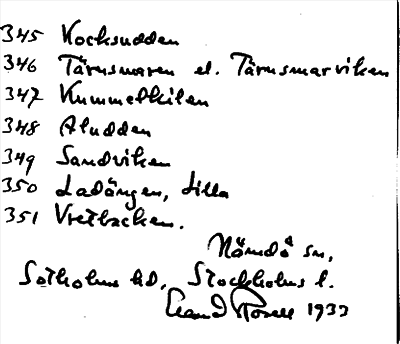 345 Kocksudden
346 Tärnsmaren el. Tärnsmarviken
347 Kummelkilen
348 Aludden
349 Sandviken
350 Ladängen, Lilla
351 Vretbacken.
Nämdö sn,
Sotholms hd, Stockholms l.
1933